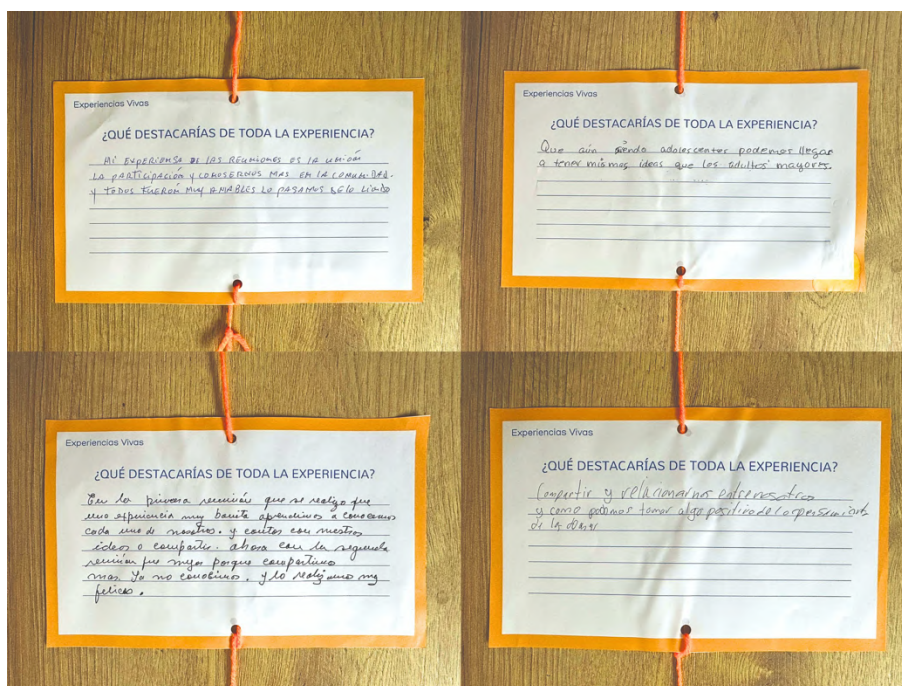 Experiencias Vivas
¿QUÉ DESTACARÍAS DE TODA LA EXPERIENCIA?
Mi EXPERIENSA DE LAS REUNIONES ES LA UNIÓN
LA PARTICIPACIÓN y CONOSERNOS MAS EN LA COMUNIDAD.
y TODOS FUERON MUY AMABLES LO PASAMOS LINDO
Experiencias Vivas
¿QUÉ DESTACARÍAS DE TODA LA EXPERIENCIA?
Que aún siendo adolescentes podemos llegar
a tener mismas ideas que los adultos mayores.
Experiencias Vivas
¿QUÉ DESTACARÍAS DE TODA LA EXPERIENCIA?
En la primera reunión que se realizo fue
una experiencia muy bonita aprendimos a conocernos
cada uno de nosotros. y contar con nuestras
ideas o compartir. ahora con la segunda
reunión fue mejor porque compartimos
mas. Ya no conocimos. y lo realizamos muy
felices.
Experiencias Vivas
¿QUÉ DESTACARÍAS DE TODA LA EXPERIENCIA?
Compartir y relacionarnos entre nosotros
y como podemos tomar algo positivo de
de las